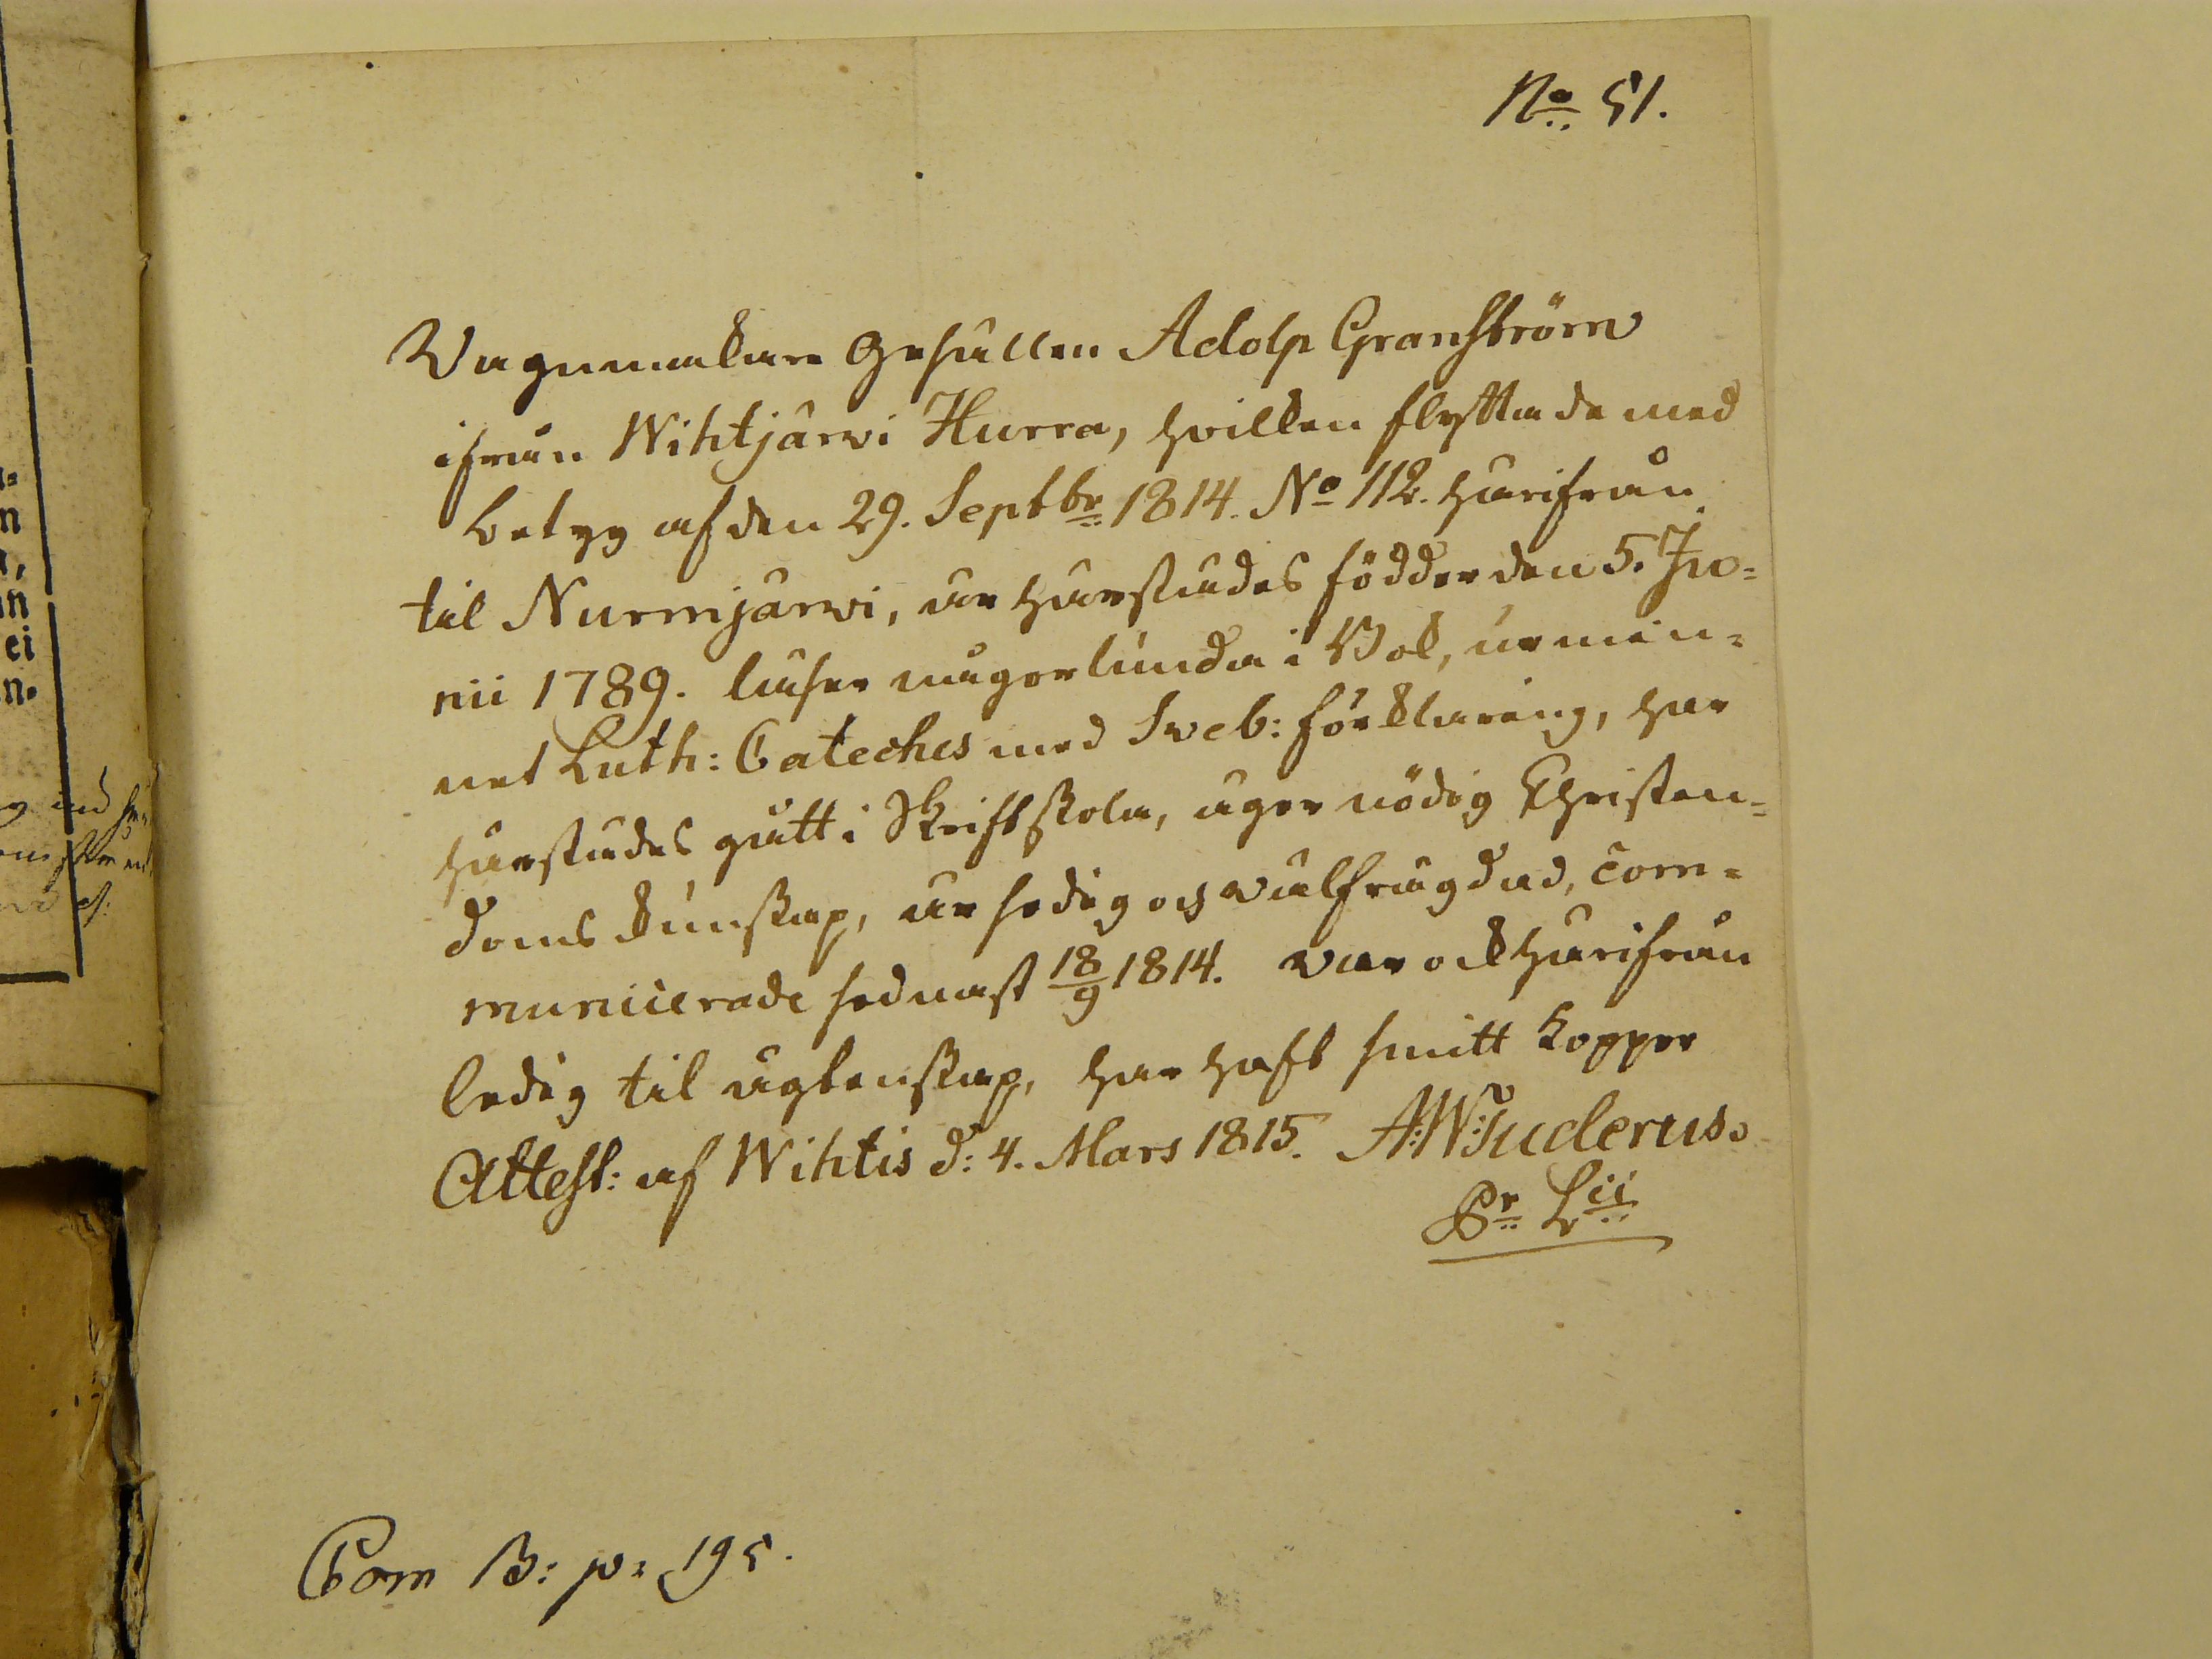 No 51.
Vagnmakare Gesällen Adolp Granström
ifrån Wihtjärvi Hurra, hvilken flyttade med
betyg af den 29. Septbr 1814. No 112. härifrån
til Nurmjärvi, är härstädes födder den 5. Ju=
nii 1789. läser någorlunda i Bok, ur min=
net Luth: Cateches med Sveb: förklaring, har
härstädes gått i Skriftskola, äger nödig Christen=
doms kunskap, är sedig och välfrägdad, com=
municerade sednast 18/9 1814. var ock härifrån
ledig til ägtenskap, har haft smitt koppor
Attest: af Wihtis d: 4. Mars 1815. A:W:Tuderus.
Pr Lii
Com B: p: 195.
n
in
ei
n.